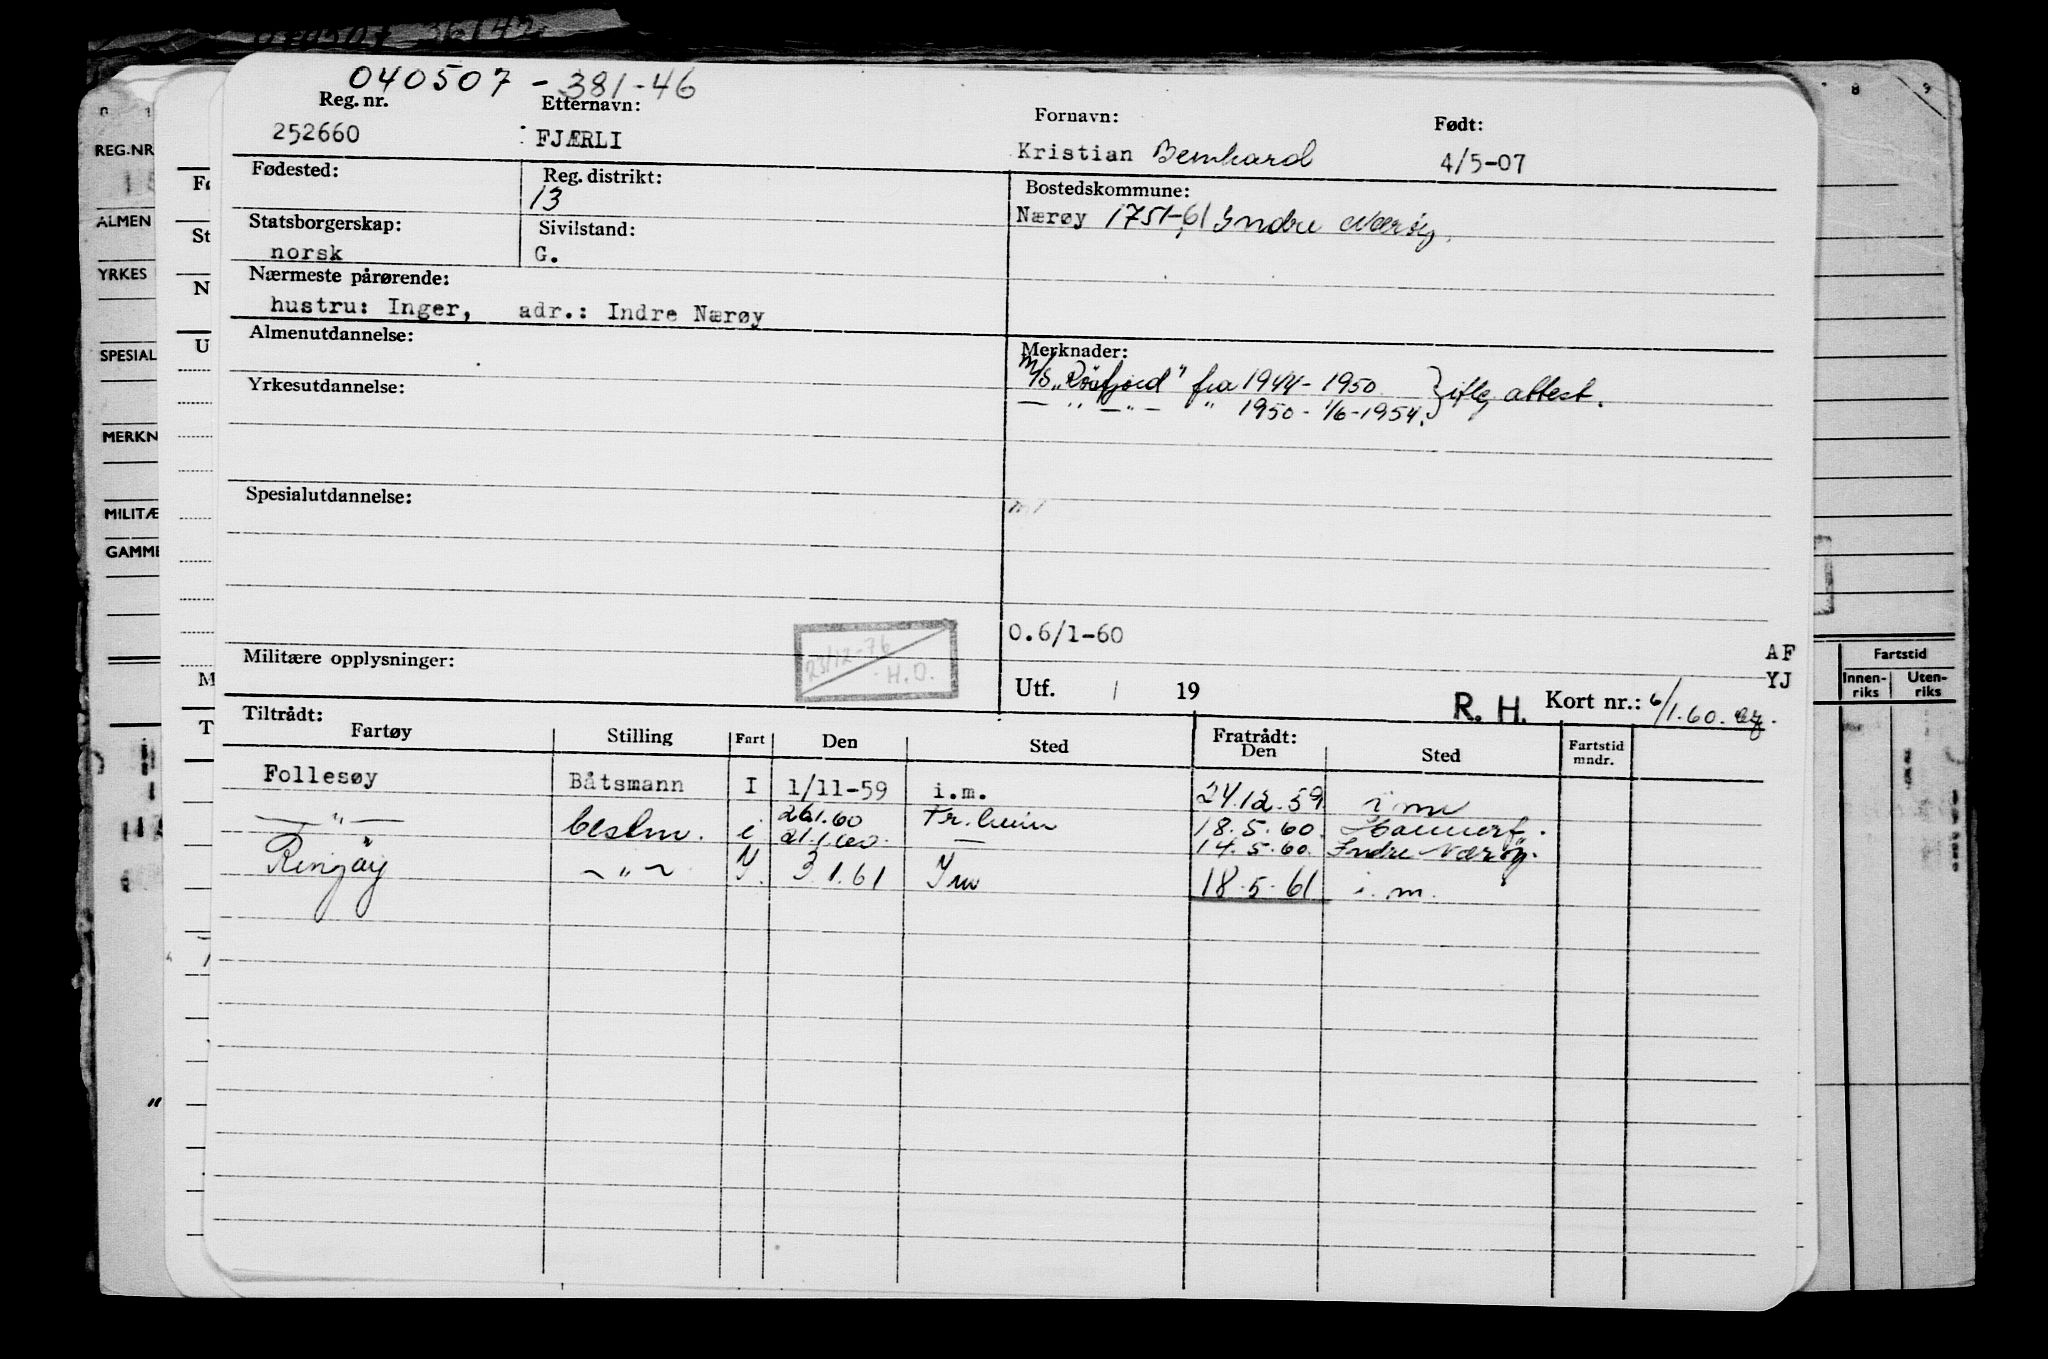 040507 - 381-46
Reg. nr. Etternavn: Fornavn: Født:
252660 FJÆRLI Kristian Bernhard 4/5-07
Fødested: Reg. distrikt: Bostedskommune:
13 Nærøy 1751-61 Indre Nærøy.
Statsborgerskap: Sivilstand:
norsk G.
Nærmeste pårørende:
hustru: Inger, adr.: Indre Nærøy
Almenutdannelse: Merknader:
Yrkesutdannelse: M/S fra 1944-1950
— " — " — " 1950 - 1/6-1954. } iflg. attest.
Spesialutdannelse:
0.6/1-60
23/12-76
H.O.
Militære opplysninger: AF
YJ
Utf. / 19 R. H. Kort nr.: 6/1.60.
Tiltrådt: Fratrådt:
Fartøy Stilling Fart Den Sted Den Sted Fartstid mndr.
Follesøy Båtsmann I 1/11-59 i.m. 24.12.59 i m
— " — i 26.1.60 18.5.60.
21.1.60. — 14.5.60. Indre Nærøy.
Ringøy — " — I. 3.1.61 I m 18.5.61 i. m.
REG.NR
ALMEN
YRKES
SPESIAL
MERKN
MILITÆ
GAMME
Fø
St
N
U
M
T
8 9
Fartstid
Innen-riks Uten-riks